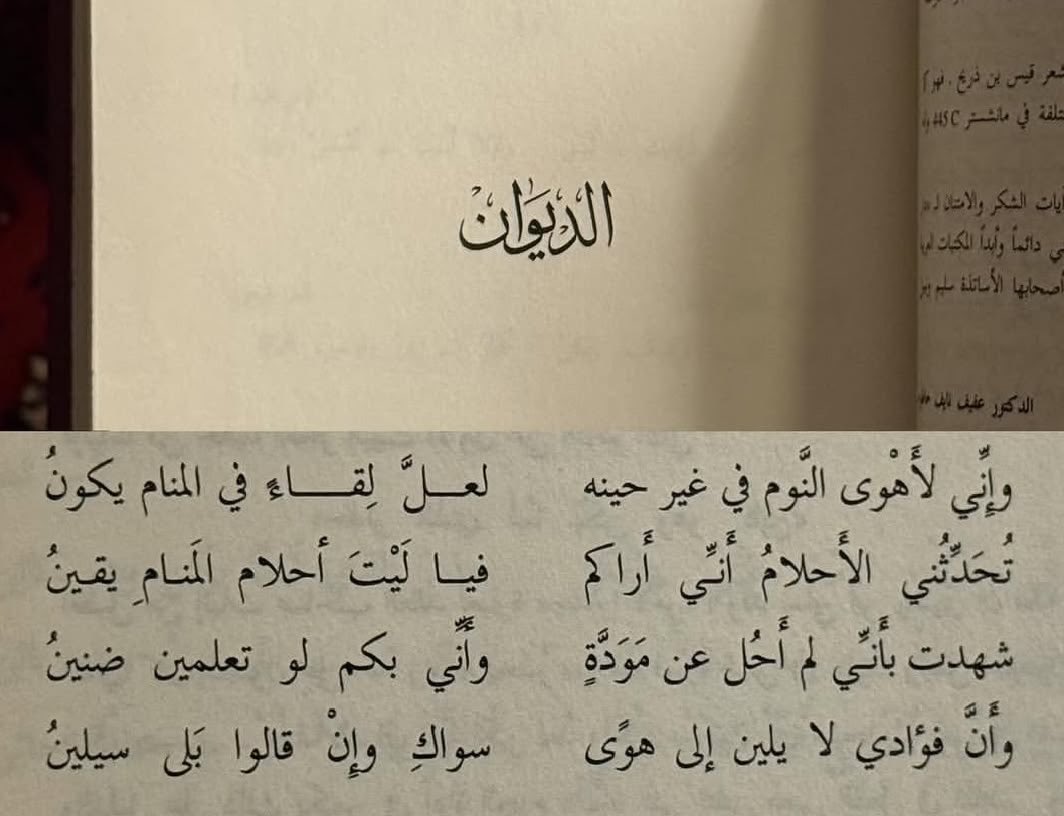 الدِّيوَان
شعر قيس بن ذريح . فهو
في مانشستر 445C
الشكر والامتنان لـ
دائماً وأبداً المكتبات
أصحابها الأساتذة سليم
الدكتور عفيف نايف
وإِنِّي لأَهْوى النَّوم في غير حينه لعـــلَّ لِقـــاءٍ في المنام يكونُ
تُحَدِّثُني الأَحلامُ أَنِّـي أَراكم فيـا لَيْتَ أحلام المَنـامِ يقـينُ
شهدت بأَنـِّي لم أَحُل عن مَوَدَّةٍ وأَنِّي بكم لو تعلمين ضنينُ
وأَنَّ فؤادي لا يلين إلى هوًى سواكِ وإِنْ قالوا بَلى سيلينُ